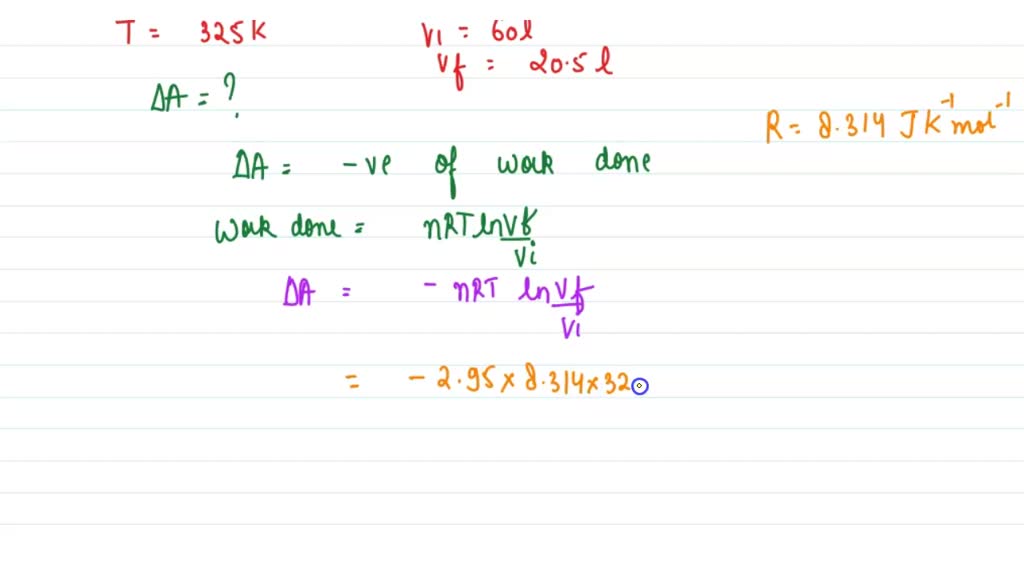 T = 325K Vi = 60l
Vf = 20.5 l
ΔA = ?
R = 8.314 J K⁻¹ mol⁻¹
ΔA = -ve of work done
Work done = nRT ln Vf/Vi
ΔA = - nRT ln Vf/Vi
= - 2.95 × 8.314 × 32